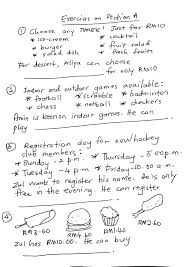 Exercises on Section A
① Choose any THREE! Just for RM10
* ice-cream * cocktail
* burger * fruit salad
* salad dish * fresh fruits
For dessert, Aliya can choose
for only RM10
② Indoor and outdoor games available:
* football * scrabble * badminton
* chess * netball * hockey
Amir is keen on indoor game. He can
③ Registration day for new hockey
club members:
* Sunday - 2 p.m. * Thursday - 5.00 p.m.
* Tuesday - 4 p.m. * Friday - 10.00 a.m.
Zul wants to register his name. He is only
free in the evening. He can register
④
RM3.60 RM4.60 RM1.40 RM2.60
Zul has RM10.00. He can buy